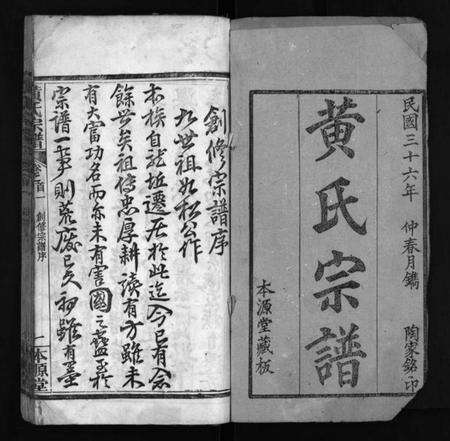 民國三十六年 仲春月鐫
黃氏宗譜
本源堂藏板
陶家銘印
創修宗譜序
九世祖如松公作
本族自
遷居於此迄今已有念
餘世矣祖傳忠厚耕讀有方雖未
有大富功名而亦未有害國之蠹至於
宗譜一事則荒廢已久初雖有墨
黃氏宗譜
卷首一
創修宗譜序
一 本源堂